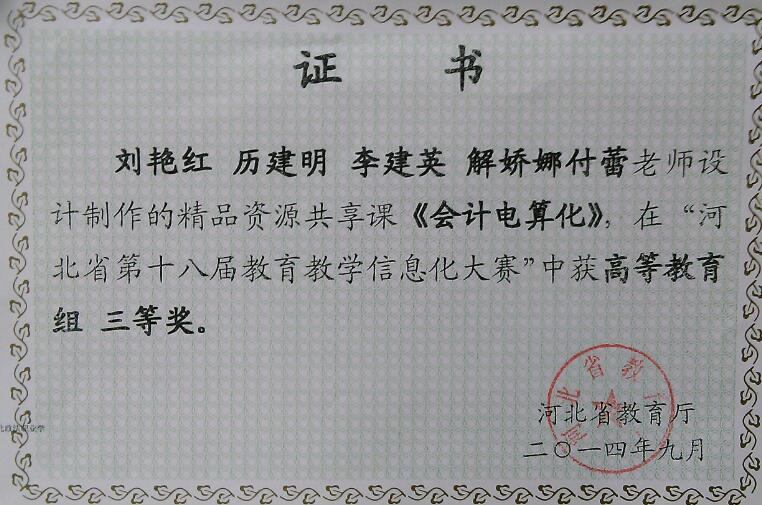 证 书
刘艳红 历建明 李建英 解娇娜付蕾老师设
计制作的精品资源共享课《会计电算化》，在“河
北省第十八届教育教学信息化大赛”中获高等教育
组 三等奖。
河北省教育厅
河北省教育厅
二〇一四年九月